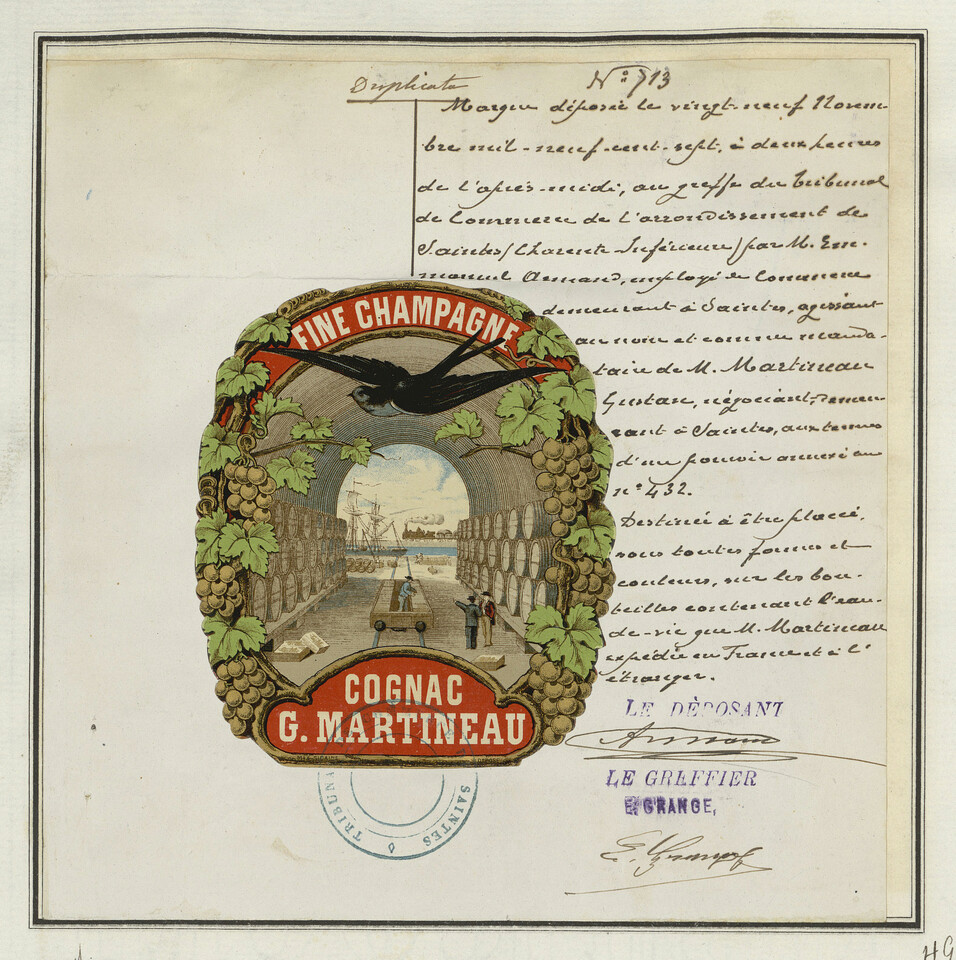 Duplicata
N° 713
Marque déposée le vingt-neuf Novem-
bre mil-neuf-cent-sept, à deux heures
de l'après-midi, au greffe du Tribunal
de Commerce de l'arrondissement de
Saintes (Charente Inférieure) par M. Em-
manuel Armand, employé de Commerce
demeurant à Saintes, agissant
au nom et comme manda-
taire de M. Martineau
Gustave, négociant, demeu-
rant à Saintes, aux termes
d'un pouvoir annexé au
n° 432.
Destinée à être placée,
sous toutes formes et
couleurs, sur les bou-
teilles contenant l'eau-
de-vie que M. Martineau
expédie en France et à l'
étranger.
FINE CHAMPAGNE
COGNAC
G. MARTINEAU
LE DÉPOSANT
Armand
LE GREFFIER
E. GRANGE,
E. Grange
TRIBUNA
SAINTES